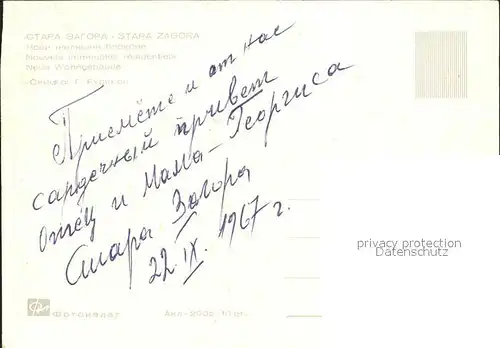 СТАРА ЗАГОРА - STARA ZAGORA
Нови жилищни блокове
Nouvels immeubles
Neue Wohngebäude
Приемёте и от нас
сардечный привет
Отец и Мама - Георгиса
Стара Загора
22. IX. 1967 г.
privacy protection
Datenschutz
Фотоиздат